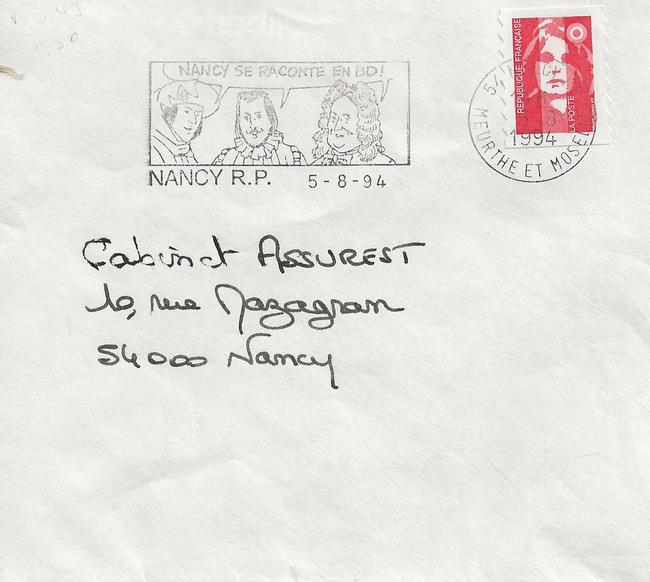 NANCY SE RACONTE EN BD!
NANCY R.P. 5-8-94
RÉPUBLIQUE FRANÇAISE
LA POSTE
1994
MEURTHE ET MOSELLE
Cabinet ASSUREST
10, rue Mazagran
54000 Nancy